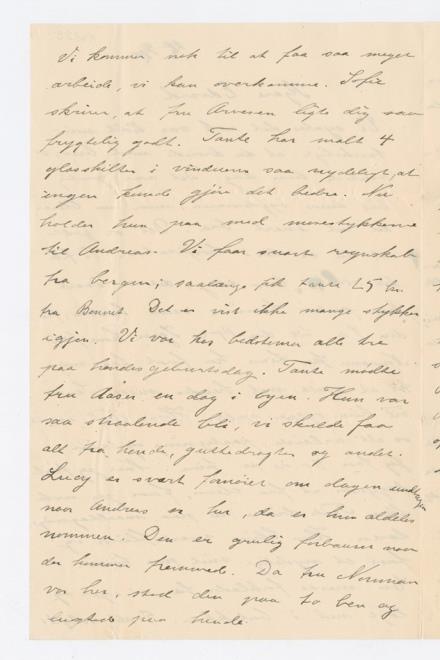 Vi kommer nok til at faa saa meget
arbeide, vi kan overkomme. Sofie
skriver, at fru Arvesen ligte dig saa
frygtelig godt. Tante har malt 4
glasskilter i vinduerne saa nydeligt, at
ingen kunde gjøre det bedre. Nu
holder hun paa med
til Andreas. Vi faar snart regnskab
fra bergen; saalænge fik tante 25 kr.
fra Bennet. Det er vist ikke mange stykker
igjen. Vi var hos bedstemor alle tre
paa hendes geburtsdag. Tante mødte
fru Aaser en dag i byen. Hun var
saa straalende bli, vi skulde faa
alt fra hende, og andet.
Lucy er svært fornøiet om dagen undtagen
naar Andreas er her, da er hun aldeles
nommen. Den er grulig naar
der kommer fremmede. Da fru Norman
var her, stod den paa to ben og
lugted paa hende.